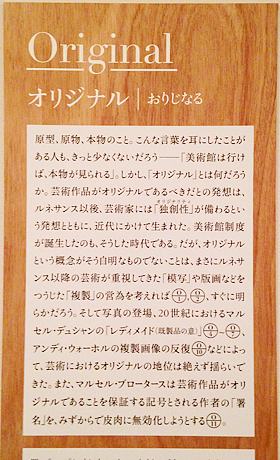 Original
オリジナル｜おりじなる
原型、原物、本物のこと。こんな言葉を耳にしたことが
ある人も、きっと少なくないだろう――「美術館は行け
ば、本物が見られる」。しかし、「オリジナル」とは何だろう
か。芸術作品がオリジナルであるべきだとの発想は、
ルネサンス以後、芸術家には「独創性」が備わるとい
オリジナリティ
う発想とともに、近代にかけて生まれた。美術館制度
が誕生したのも、そうした時代である。だが、オリジナル
という概念がそう自明なものでないことは、まさにルネサ
ンス以降の芸術が重視してきた「模写」や版画などを
つうじた「複製」の営為を考えれば、すぐに明
らかだろう。そして写真の登場、20世紀におけるマル
セル・デュシャンの「レディメイド（既製品の意）」、
アンディ・ウォーホルの複製画像の反復などによっ
て、芸術におけるオリジナルの地位は絶えず揺らいで
きた。また、マルセル・ブロータースは芸術作品がオリ
ジナルであることを保証する記号とされる作者の「署
名」を、みずからで皮肉に無効化しようとする。